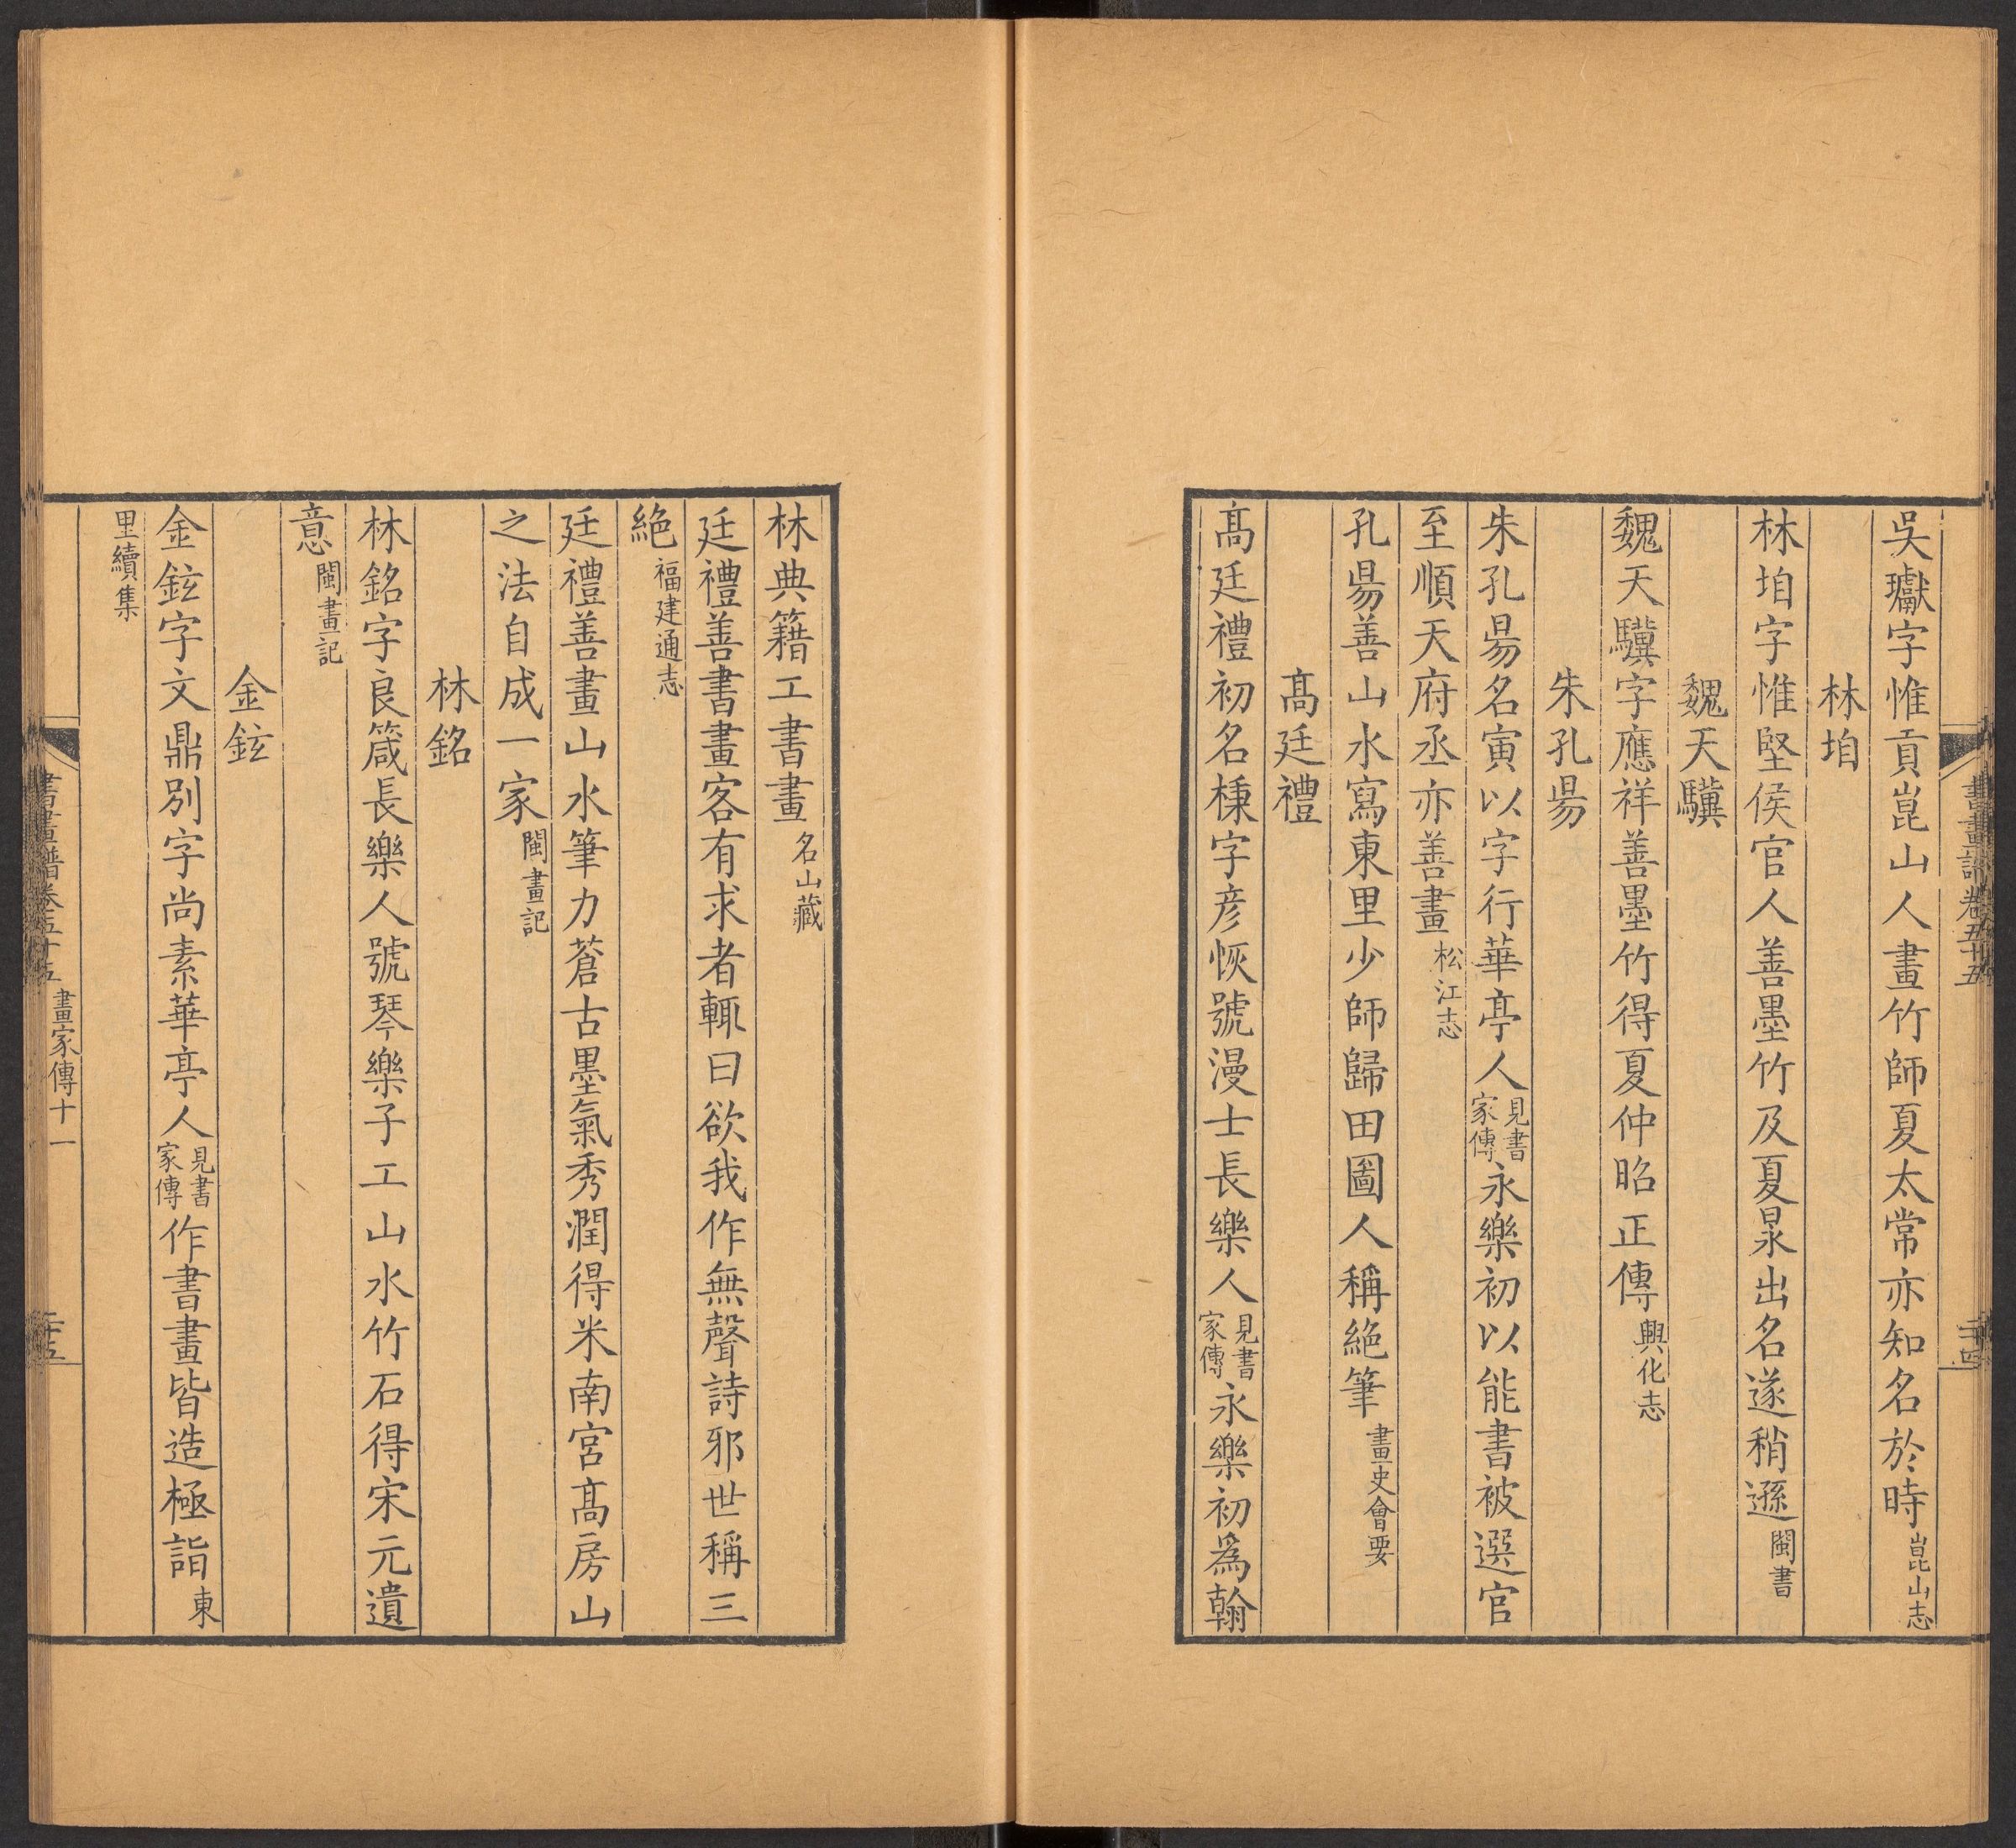 吳瓛字惟貢崑山人畫竹師夏太常亦知名於時崑山志
林垍
林垍字惟堅侯官人善墨竹及夏昺出名遂稍遜閩書
魏天驥
魏天驥字應祥善墨竹得夏仲昭正傳興化志
朱孔昜
朱孔昜名寅以字行華亭人見書家傳永樂初以能書被選官
至順天府丞亦善畫松江志
孔昜善山水寫東里少師歸田圖人稱絕筆畫史會要
髙廷禮
髙廷禮初名棅字彥恢號漫士長樂人見書家傳永樂初爲翰
林典籍工書畫名山藏
廷禮善書畫客有求者輒曰欲我作無聲詩邪世稱三
絕福建通志
廷禮善畫山水筆力蒼古墨氣秀潤得米南宮髙房山
之法自成一家閩畫記
林銘
林銘字良箴長樂人號琴樂子工山水竹石得宋元遺
意閩畫記
金鉉
金鉉字文鼎別字尚素華亭人見書家傳作書畫皆造極詣東
里續集
書畫譜卷五十五 畫家傳十一